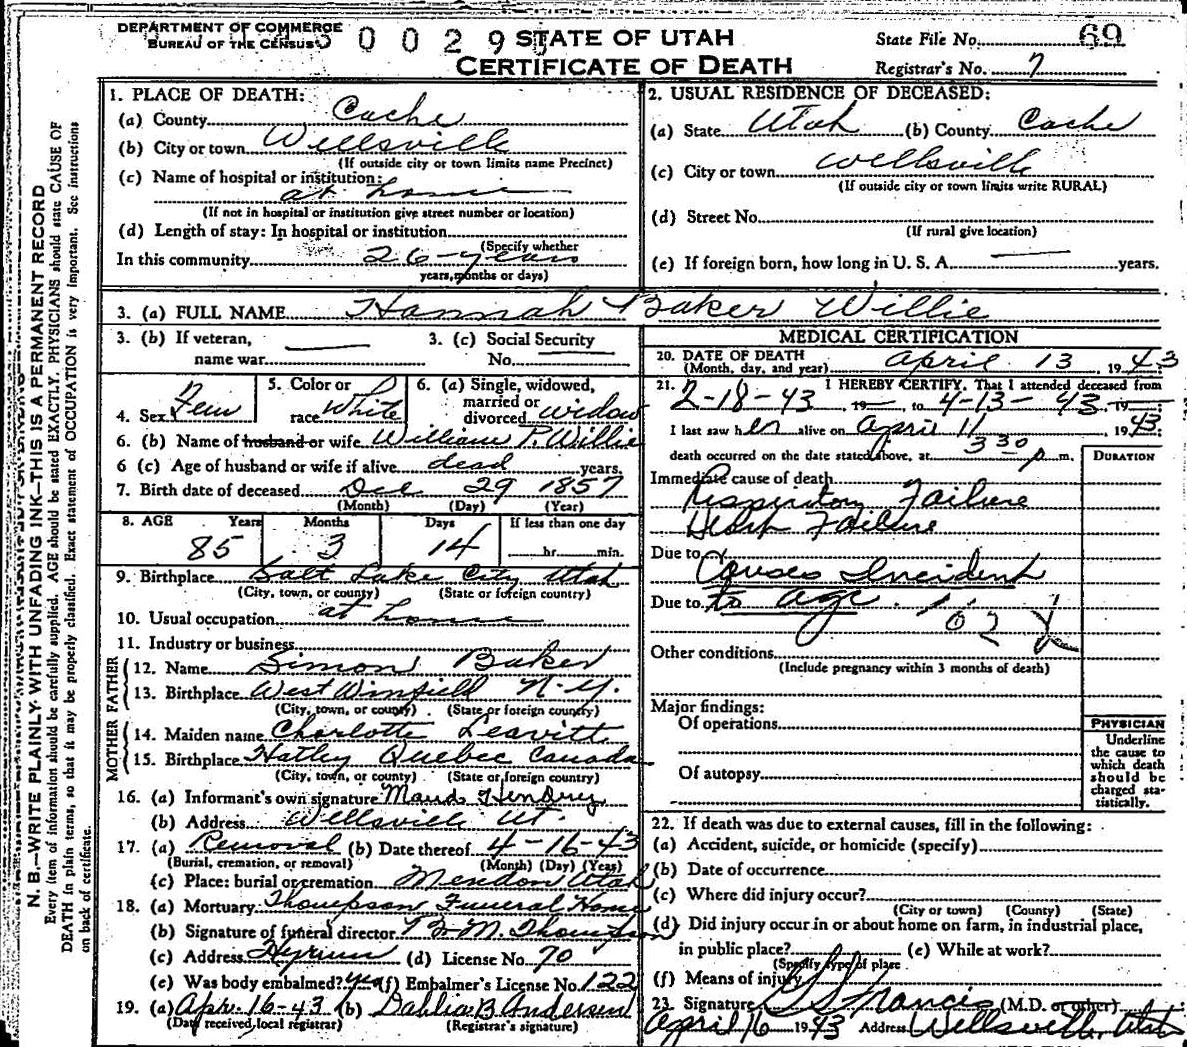 DEPARTMENT OF COMMERCE
BUREAU OF THE CENSUS
0 0 2 9
STATE OF UTAH
CERTIFICATE OF DEATH
State File No. 69
Registrar's No. 7
N. B.—WRITE PLAINLY WITH UNFADING INK—THIS IS A PERMANENT RECORD
Every item of information should be carefully supplied. AGE should be stated EXACTLY. PHYSICIANS should state CAUSE OF
DEATH in plain terms, so that it may be properly classified. Exact statement of OCCUPATION is very important. See instructions
on back of certificate.
1. PLACE OF DEATH:
(a) County Cache
(b) City or town Wellsville
(If outside city or town limits name Precinct)
(c) Name of hospital or institution:
at home
(If not in hospital or institution give street number or location)
(d) Length of stay: In hospital or institution
(Specify whether
In this community 26-years
years, months or days)
2. USUAL RESIDENCE OF DECEASED:
(a) State Utah (b) County Cache
(c) City or town Wellsville
(If outside city or town limits write RURAL)
(d) Street No.
(If rural give location)
(e) If foreign born, how long in U. S. A. — years.
3. (a) FULL NAME Hannah Baker Willie
3. (b) If veteran,
name war —
3. (c) Social Security
No. —
4. Sex Fem
5. Color or
race White
6. (a) Single, widowed,
married or
divorced widow
6. (b) Name of husband or wife William P. Willie
6 (c) Age of husband or wife if alive dead years.
7. Birth date of deceased Dec 29 1857
(Month) (Day) (Year)
8. AGE Years Months Days If less than one day
85 3 14 hr. min.
9. Birthplace Salt Lake City Utah
(City, town, or county) (State or foreign country)
10. Usual occupation at home
11. Industry or business
FATHER
12. Name Simon Baker
13. Birthplace West Winfield N-Y.
(City, town, or county) (State or foreign country)
MOTHER
14. Maiden name Charlotte Leavitt
15. Birthplace Hatley Quebec Canada
(City, town, or county) (State or foreign country)
16. (a) Informant's own signature Maud Hendry
(b) Address Wellsville Ut.
17. (a) Removal (b) Date thereof 4-16-43
(Burial, cremation, or removal) (Month) (Day) (Year)
(c) Place: burial or cremation Mendon Utah
18. (a) Mortuary Thompson Funeral Home
(b) Signature of funeral director M. Thompson
(c) Address Hyrum (d) License No. 70
(e) Was body embalmed? yes (f) Embalmer's License No. 122
19. (a) Apr. 16-43 (b) Dahlia B Anderson
(Date received, local registrar) (Registrar's signature)
MEDICAL CERTIFICATION
20. DATE OF DEATH
(Month, day, and year) April 13, 1943
21. I HEREBY CERTIFY, That I attended deceased from
2-18-43, 19—, to 4-13-43, 19—
I last saw her alive on April 11, 1943;
death occurred on the date stated above, at 330 p m.
DURATION
Immediate cause of death
Respiratory Failure
Heart Failure
Due to Causes Incident
Due to to age. 162
Other conditions
(Include pregnancy within 3 months of death)
Major findings:
Of operations
Of autopsy
PHYSICIAN
Underline
the cause to
which death
should be
charged sta-
tistically.
22. If death was due to external causes, fill in the following:
(a) Accident, suicide, or homicide (specify)
(b) Date of occurrence
(c) Where did injury occur?
(City or town) (County) (State)
(d) Did injury occur in or about home on farm, in industrial place,
in public place? (e) While at work?
(Specify type of place
(f) Means of injury
23. Signature Francis (M.D. or other)
April 16 1943 Address Wellsville, Utah